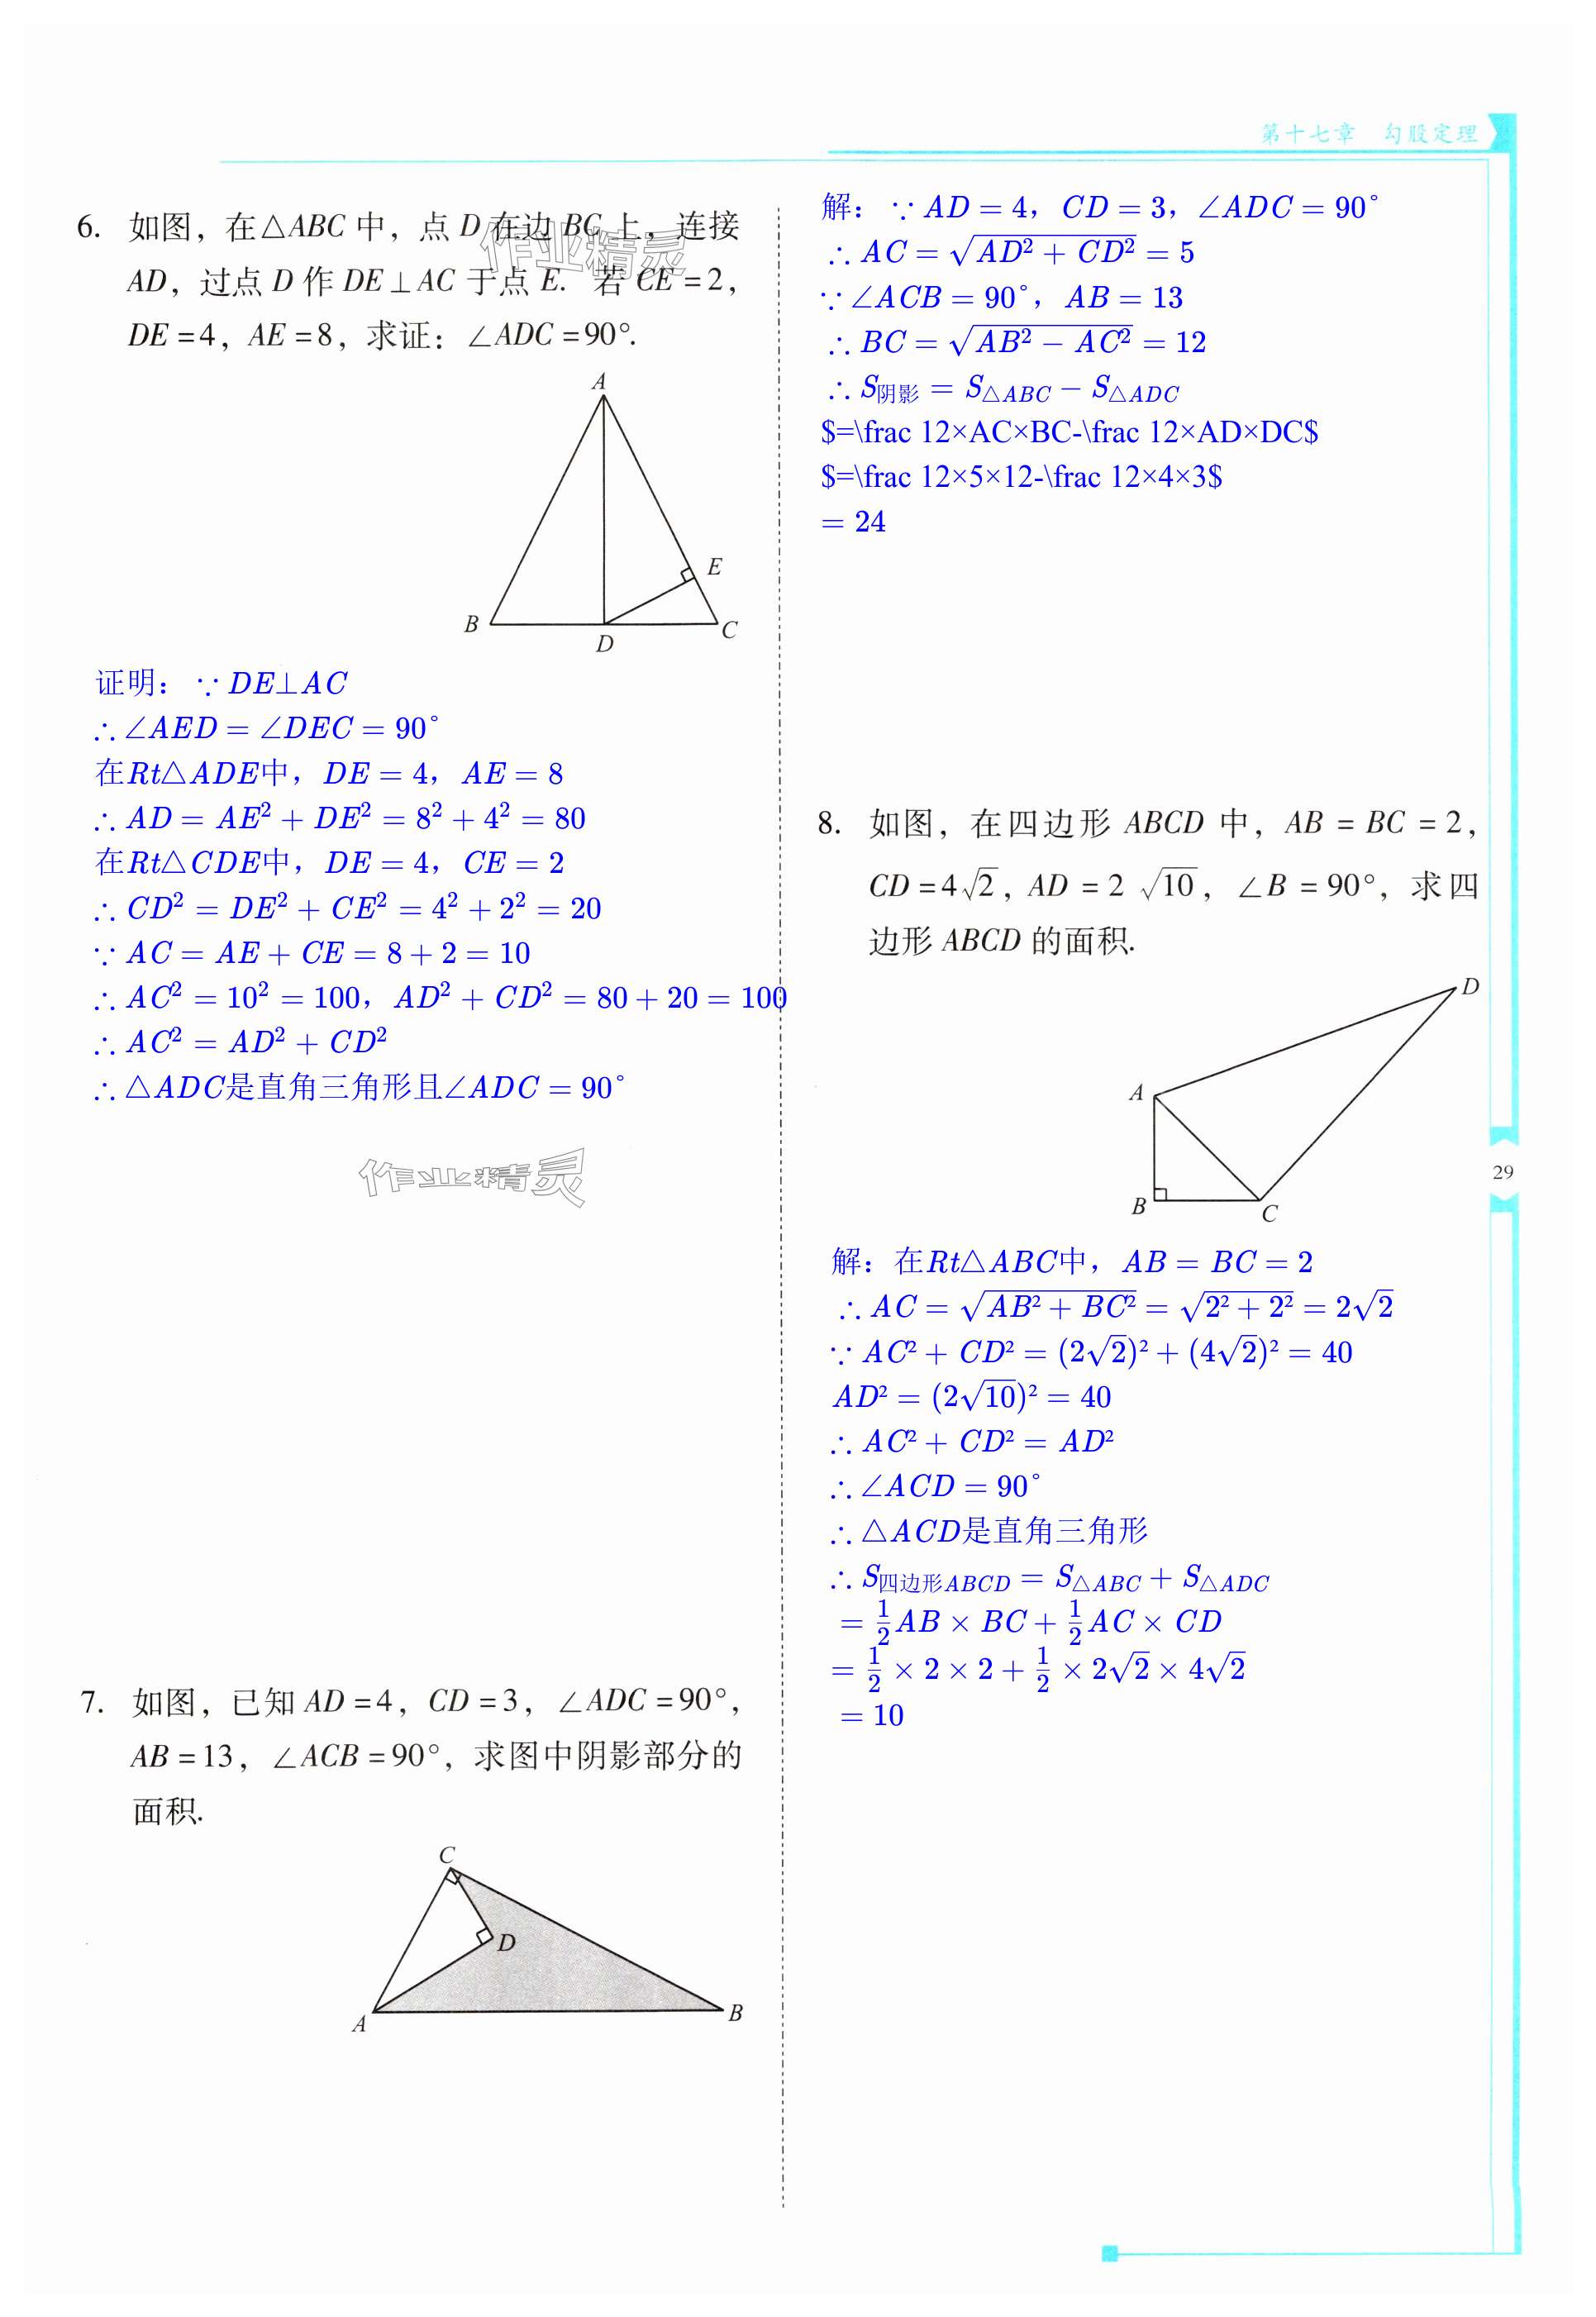 第十七章 勾股定理
6. 如图，在△ABC 中，点 D 在边 BC 上，连接
AD，过点 D 作 DE⊥AC 于点 E. 若 CE=2，
DE=4，AE=8，求证：∠ADC=90°.
A
E
B
D
C
证明：∵DE⊥AC
∴∠AED=∠DEC=90°
在Rt△ADE中，DE=4，AE=8
∴AD=AE²+DE²=8²+4²=80
在Rt△CDE中，DE=4，CE=2
∴CD²=DE²+CE²=4²+2²=20
∵AC=AE+CE=8+2=10
∴AC²=10²=100，AD²+CD²=80+20=100
∴AC²=AD²+CD²
∴△ADC是直角三角形且∠ADC=90°
作业精灵
作业精灵
7. 如图，已知 AD=4，CD=3，∠ADC=90°，
AB=13，∠ACB=90°，求图中阴影部分的
面积.
C
D
A
B
解：∵AD=4，CD=3，∠ADC=90°
∴AC=√(AD²+CD²)=5
∵∠ACB=90°，AB=13
∴BC=√(AB²−AC²)=12
∴S阴影=S△ABC−S△ADC
$=\frac 12×AC×BC-\frac 12×AD×DC$
$=\frac 12×5×12-\frac 12×4×3$
=24
8. 如图，在四边形 ABCD 中，AB=BC=2，
CD=4√2，AD=2√10，∠B=90°，求四
边形 ABCD 的面积.
D
A
B
C
29
解：在Rt△ABC中，AB=BC=2
∴AC=√(AB²+BC²)=√(2²+2²)=2√2
∵AC²+CD²=(2√2)²+(4√2)²=40
AD²=(2√10)²=40
∴AC²+CD²=AD²
∴∠ACD=90°
∴△ACD是直角三角形
∴S四边形ABCD=S△ABC+S△ADC
=1/2AB×BC+1/2AC×CD
=1/2×2×2+1/2×2√2×4√2
=10